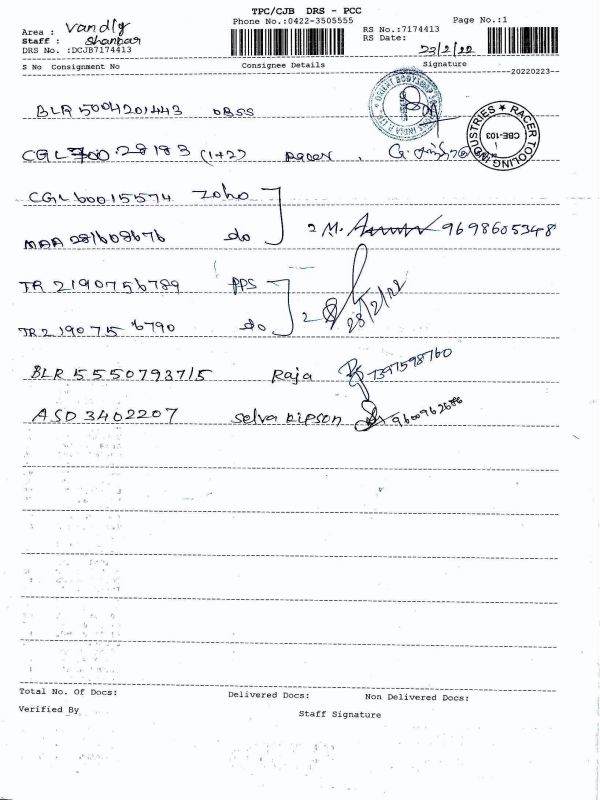 TPC/CJB DRS - PCC
Phone No.:0422-3505555
Page No.:1
Area : Vandly
Staff : Shankar
DRS No. :DCJB7174413
RS No.:7174413
RS Date: 23/2/22
S No Consignment No Consignee Details Signature
20220223
BLR 5004201443 OBSS
RACER TOOLING INDUSTRIES
CBE-103
28183 (1+2) Racer
CGL 60015574 Zoho
MAA 281608676 do 2 M. 9698605348
TR 2190756789 PPS
TR 2190756790 do 2
28/2/22
BLR 5550793715 Raja 7397598760
ASD 3402207 Selva 9600962686
Total No. Of Docs: Delivered Docs: Non Delivered Docs:
Verified By Staff Signature